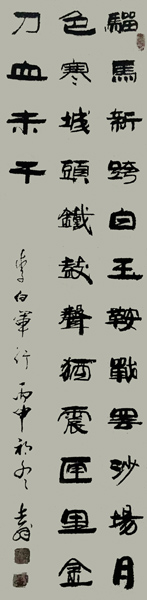 驑馬新跨白玉鞍戰罷沙場月
色寒城頭鐵鼓聲猶震匣里金
刀血未干
李白軍行丙申初冬